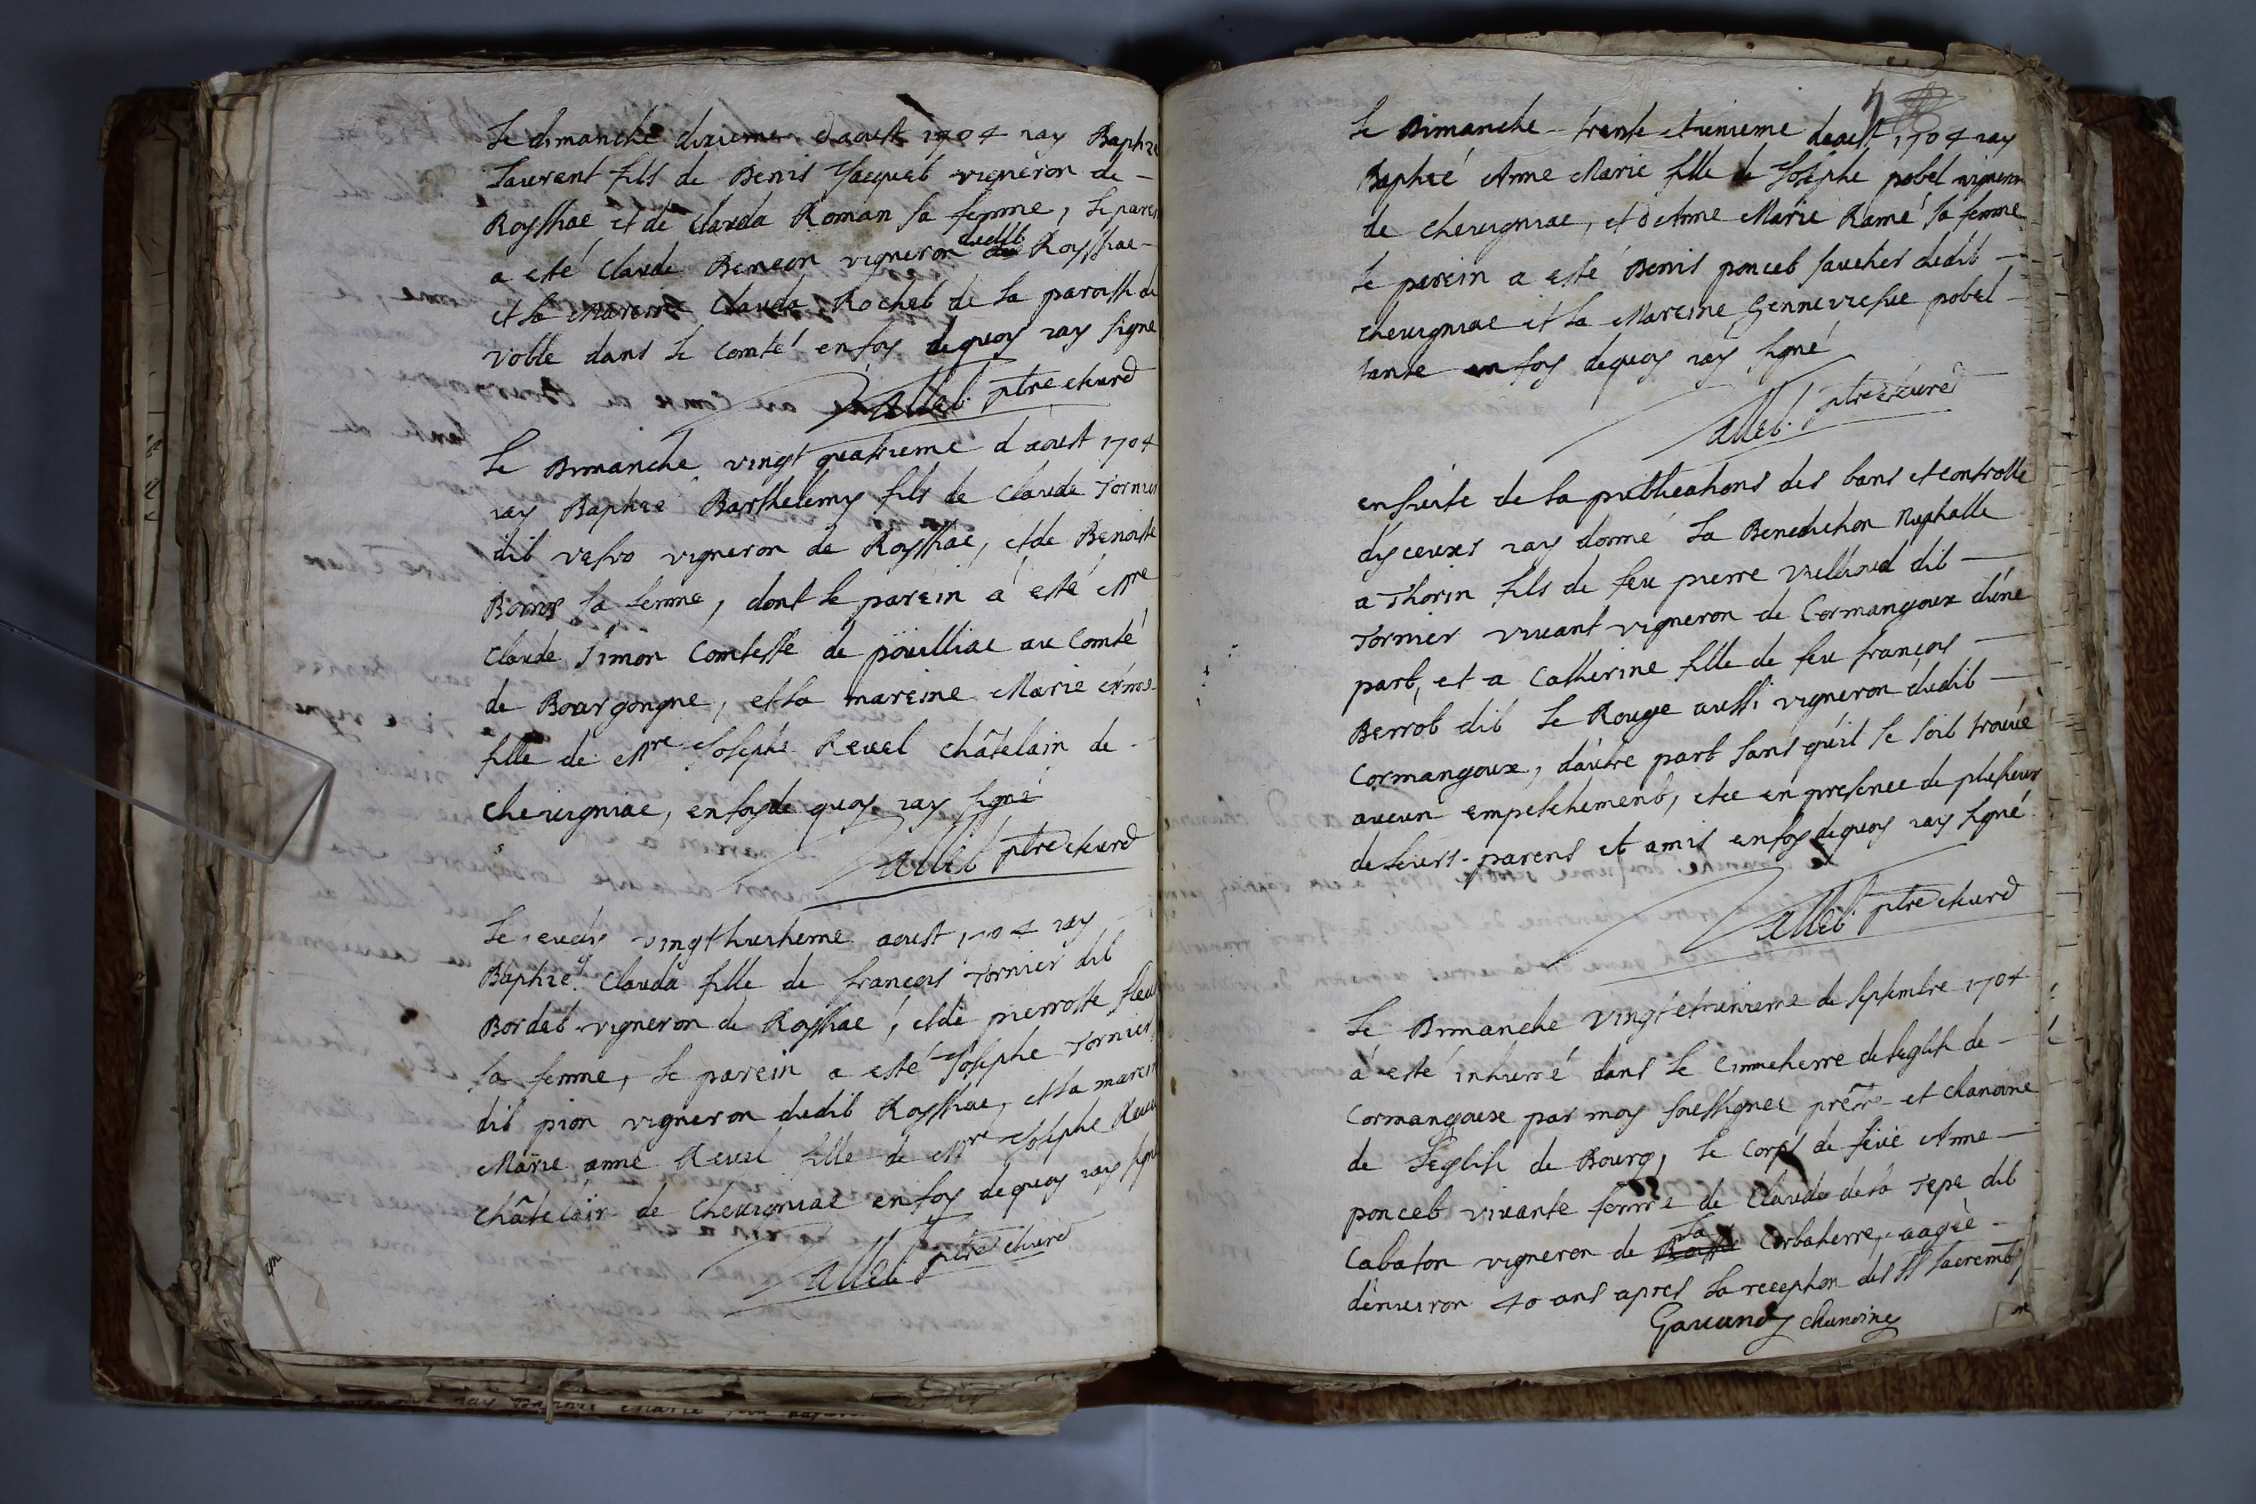 Le dimanche dixieme d'aoust 1704 iay Baptizé
Laurent fils de Denis Jacquet vigneron de
Royssiac et de Clauda Roman sa femme, le parein
a esté Claude Beneon vigneron dudit Royssiac
et la mareine Clauda Rochet de la paroisse de
Voble dans le comté en foy dequoy iay signé
Allet ptre et curé
Le Dimanche vingt quatrieme d'aoust 1704
iay Baptizé Barthelemy fils de Claude Tornier
dit vesvo vigneron de Royssiac, et de Benoiste
sa femme, dont le parein a esté Mre
Claude Simon Comtesse de poüilliac au Comté
de Bourgongne, et la mareine Marie
fille de Mre Josephe Revel châtelain de
Chevigniac, en foy de quoy iay signé
Allet ptre et curé
Le jeudy vingthuitieme aoust 1704 iay
Baptizé Clauda fille de françois Tornier dit
Bordet vigneron de Royssiac, et de pierrotte
sa femme, le parein a esté Josephe Tornier
dit pion vigneron dudit Royssiac, et la mareine
Marie anne Revel fille de Mre Josephe Revel
châtelain de Chevigniac en foy dequoy iay signé
Allet ptre et curé
Le Dimanche trente et unieme d'aoust 1704 iay
Baptizé Anne Marie fille de Josephe pobel vigneron
de chevigniac, et d'Anne Marie Ramé sa femme
le parein a esté Denis poncet dudit
chevigniac et la Mareine Genneviesve pobel
tante en foy dequoy iay signé
Allet ptre et curé
ensuite de la publications des bans et controlle
d'yceuxs iay donné la Benediction Nuptialle
a Thorin fils de feu pierre Vuillioud dit
Tornier vivant vigneron de Cormangoux d'une
part, et a Catherine fille de feu françois
Berrot dit le Rouge aussi vigneron dudit
Cormangoux, d'autre part sans qu'il se soit trouvé
aucun empeschement, et ce en presence de plusieurs
de leurs parens et amis en foy dequoy iay signé
Allet ptre et curé
Le Dimanche vingt et unieme de septembre 1704
à esté inhumé dans le Cimmetierre de leglise de
Cormangoux par moy soussignee prêtre et chanoine
de l'eglise de Bourg, le Corps de feüe Anne
poncet vivante femme de Claude de la Tepe dit
Cabaton vigneron de la Corbatierre, aagée
d'environ 40 ans apres la reception des SS sacremts
Gavand chanoine